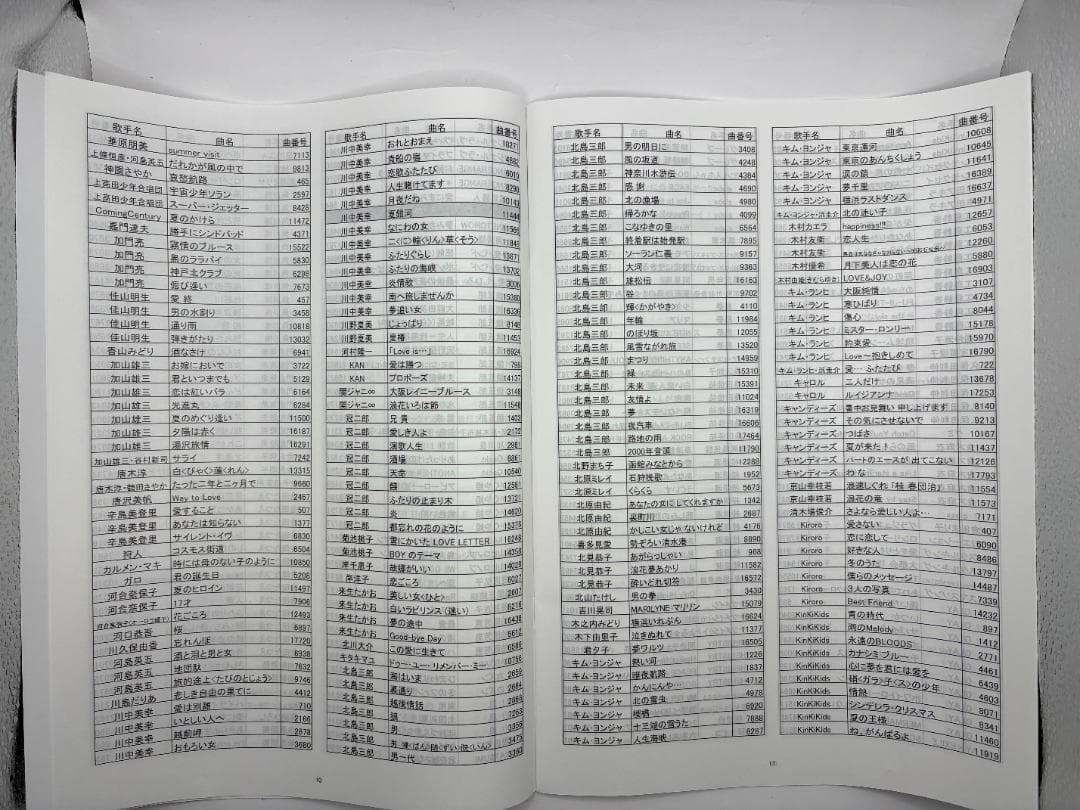 歌手名 曲名 曲番号
華原朋美 summer visit 7113
上條恒彦・河島英五 だれかが風の中で 9813
神園さやか 哀愁航路 465
上高田少年合唱団 宇宙少年ソラン 2597
上高田少年合唱団 スーパー・ジェッター 8428
ComingCentury 夏のかけら 11472
嘉門達夫 勝手にシンドバッド 4371
加門亮 慕情のブルース 15522
加門亮 男のララバイ 5830
加門亮 神戸北クラブ 6296
加門亮 偲び逢い 7673
佳山明生 愛終 457
佳山明生 男の水割り 3458
佳山明生 通り雨 10818
佳山明生 弾きがたり 13032
香山みどり 酒なさけ 6941
加山雄三 お嫁においで 3722
加山雄三 君といつまでも 5129
加山雄三 恋は紅いバラ 6164
加山雄三 光進丸 6284
加山雄三 夏のめぐり逢い 11500
加山雄三 夕陽は赤く 16187
加山雄三 湯沢旅情 16291
加山雄三・谷村新司 サライ 7242
唐木淳 白<びゃく>蓮<れん> 13315
唐木淳・鶴田さやか たった二年と二ヶ月で 9660
唐沢美帆 Way to Love 2467
辛島美登里 愛すること 507
辛島美登里 あなたは知らない 1377
辛島美登里 サイレント・イヴ 6830
狩人 コスモス街道 6504
カルメン・マキ 時には母のない子のように 10850
ガロ 君の誕生日 5208
河合奈保子 夏のヒロイン 11497
河合奈保子 17才 7906
花ごころ 12493
河口恭吾 桜 6897
川久保由香 忘れんぼ 17720
河島英五 酒と泪と男と女 6936
河島英五 地団駄 7632
河島英五 旅的途上<たびのとじょう> 9746
川島だりあ 悲しき自由の果てに 4412
川中美幸 愛は別離 710
川中美幸 いとしい人へ 2166
川中美幸 越前岬 2878
川中美幸 おもろい女 3680
歌手名 曲名 曲番号
川中美幸 おれとおまえ
川中美幸 貴船の宿 4682
川中美幸 恋歌ふたたび
川中美幸 人生賭けてます
川中美幸 月夜だね
川中美幸 夏銀河 11448
川中美幸 なにわの女
川中美幸 二<に>輪<りん>草<そう>
川中美幸 ふたりぐらし
川中美幸 ふたりの海峡 13702
川中美幸 炎情歌 3006
川中美幸 南へ旅しませんか 15380
川中美幸 夢追い女
川野夏美 じょっぱり
川野夏美 夏椿
河村隆一 「Love is…」 16924
KAN 愛は勝つ
KAN プロポーズ 14137
関ジャニ∞ 大阪レイニーブルース
関ジャニ∞ 浪花いろは節
冠二郎 兄貴
冠二郎 愛しき人よ
冠二郎 演歌人生
冠二郎 酒場
冠二郎 天幸
冠二郎
冠二郎 ふたりの止まり木
冠二郎 炎
冠二郎 都忘れの花のように
菊池桃子 雪にかいた LOVE LETTER
菊池桃子 BOYのテーマ
岸千恵子 故郷がいい
岸洋子 恋ごころ
来生たかお 美しい女<ひと>
来生たかお 白いラビリンス(迷い)
来生たかお 夢の途中 16438
来生たかお Good-bye Day
北川大介 この愛に生きて
キタキマユ ドゥー・ユー・リメンバー・ミー
北島三郎 海はいま
北島三郎 裏通り
北島三郎 越後情話
北島三郎
北島三郎 男
北島三郎
北島三郎 男一代
12
歌手名 曲名 曲番号
北島三郎 男の明日に 3408
北島三郎 風の坂道 4248
北島三郎 神奈川水滸伝 4384
北島三郎 感謝 4690
北島三郎 北の漁場 4980
北島三郎 帰ろかな 4099
北島三郎 こなゆきの里 6564
北島三郎 終着駅は始発駅 7895
北島三郎 ソーラン仁義 9157
北島三郎 大河 9383
北島三郎 雄松伝 16163
北島三郎 谷 9702
北島三郎 輝<かがやき> 4110
北島三郎 年輪 11984
北島三郎 のぼり坂 12055
北島三郎 風雪ながれ旅 13520
北島三郎 まつり 14959
北島三郎 緑 15310
北島三郎 未来 15391
北島三郎 友情よ 11024
北島三郎 夢 16319
北島三郎 夜汽車 16606
北島三郎 路地の雨 17464
北島三郎 2000年音頭 11790
北野まち子 函館みなとから 12288
北原ミレイ 石狩挽歌 1952
北原ミレイ くらくら 5673
北原由紀 あなたの女にしてくれますか 1342
北原由紀 裏町川 2687
北原由紀 かしこい女じゃないけれど 4176
喜多見愛 勢ぞろい清水港 8890
北見恭子 あがらっしゃい 968
北見恭子 浪花夢あかり 11582
北見恭子 酔いどれ切符 16572
北山たけし 男の拳 3430
吉川晃司 MARILYNE マリリン 15079
木之内みどり 横浜いれぶん 16624
木下由里子 泣きぬれて 11377
君夕子 夢ワルツ 16505
キム・ヨンジャ 熱い河 1226
キム・ヨンジャ 暗夜航路 1837
キム・ヨンジャ かんにんや… 4712
キム・ヨンジャ 北の雪虫 4978
キム・ヨンジャ 桜橋 6920
キム・ヨンジャ 十三湖の雪うた 7888
キム・ヨンジャ 人生海峡 8287
歌手名 曲名 曲番号
キム・ヨンジャ 東京運河 10608
キム・ヨンジャ 東京のあんちくしょう 10645
キム・ヨンジャ 涙の鎖 11641
キム・ヨンジャ 夢千里 16389
キム・ヨンジャ 横浜ラストダンス 16637
キム・ヨンジャ・浜圭介 北の迷い子 4971
木村カエラ happiness!!! 12657
木村友衛 恋人生 6053
木村友衛 12260
木村優希 月下美人は恋の花 5880
木村由姫(きむらゆき) LOVE&JOY 16903
キム・ランヒ 大阪純情 3107
キム・ランヒ 寒ひばり 4734
キム・ランヒ 傷心 8044
キム・ランヒ ミスター・ロンリー 15178
キム・ランヒ 約束愛 15970
キム・ランヒ Love〜抱きしめて 16790
キム・ランヒ・浜圭介 愛…ふたたび 722
キャロル 二人だけ 13678
キャロル ルイジアンナ 17253
キャンディーズ 暑中お見舞い申し上げます 8140
キャンディーズ その気にさせないで 9213
キャンディーズ つばさ 10167
キャンディーズ 夏が来た! 11437
キャンディーズ ハートのエースが出てこない 12126
キャンディーズ わな 17793
京山幸枝若 浪速しぐれ「桂春団治」 11554
京山幸枝若 浪花の竜 11573
清木場俊介 さよなら愛しい人よ… 7171
Kiroro 愛さない 407
Kiroro 恋に恋して 6090
Kiroro 好きな人 8486
Kiroro 冬のうた 13797
Kiroro 僕らのメッセージ 14487
Kiroro 3人の写真 7339
Kiroro Best Friend
KinKi Kids 青の時代 1432
KinKi Kids 雨のMelody 897
KinKi Kids 永遠のBLOODS 1412
KinKi Kids カナシミブルー 2771
KinKi Kids 心に夢を君には愛を 4461
KinKi Kids 硝<ガラ>子<ス>の少年 6439
KinKi Kids 情熱 4603
KinKi Kids シンデレラ・クリスマス 8071
KinKi Kids 夏の王様 8341
KinKi Kids ね、がんばるよ 11460
11919
13